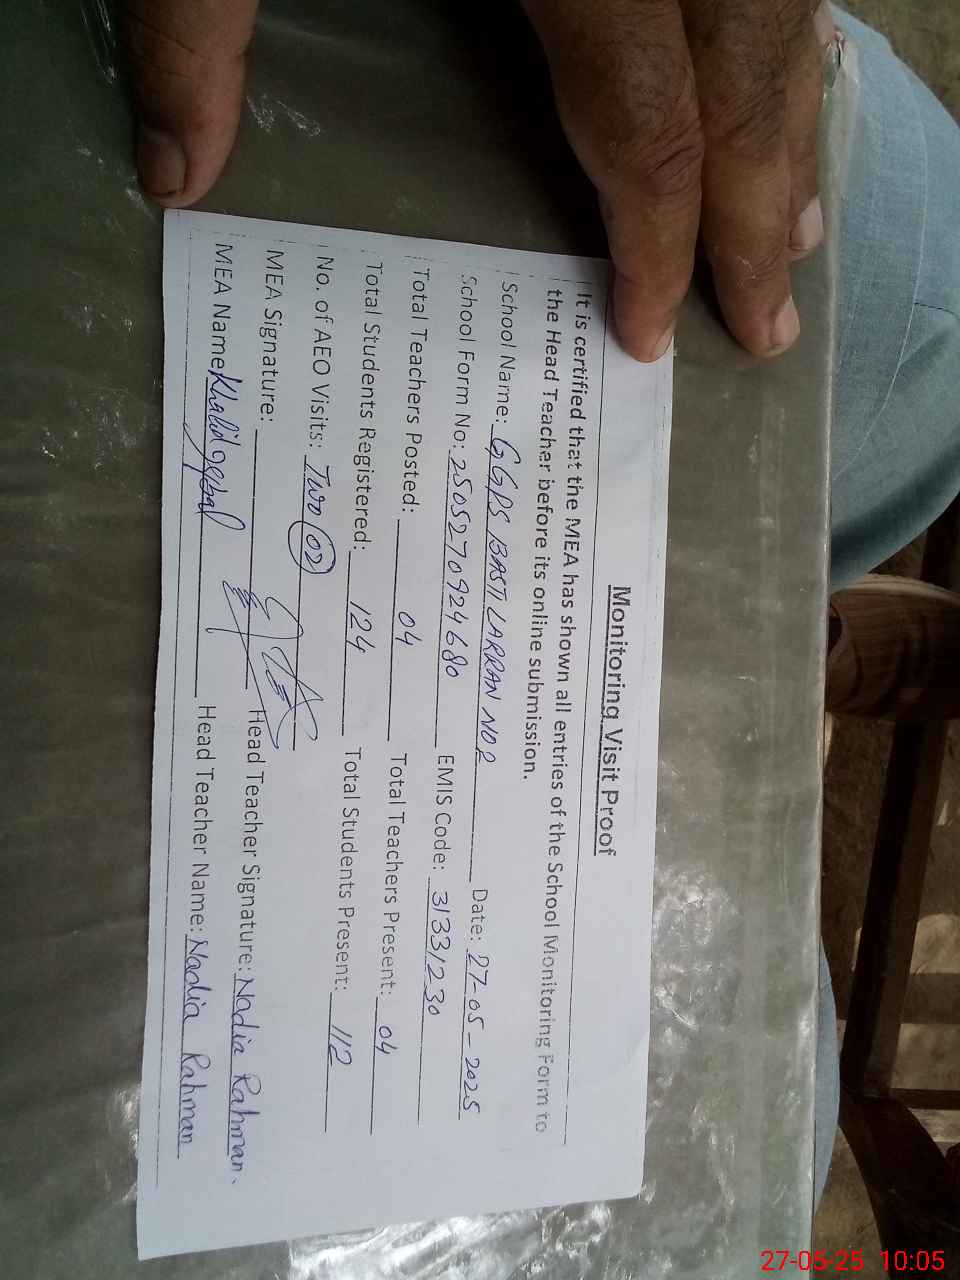 Monitoring Visit Proof
It is certified that the MEA has shown all entries of the School Monitoring Form to
the Head Teacher before its online submission.
School Name: GGPS BASTI LARRAN NO2 Date: 27-05-2025
School Form No: 2505270924680 EMIS Code: 31331230
Total Teachers Posted: 04 Total Teachers Present: 04
Total Students Registered: 124 Total Students Present: 112
No. of AEO Visits: Two 02
MEA Signature: Head Teacher Signature: Nadia Rahman.
MEA Name Khalid Iqbal Head Teacher Name: Nadia Rahman
27-05-25 10:05